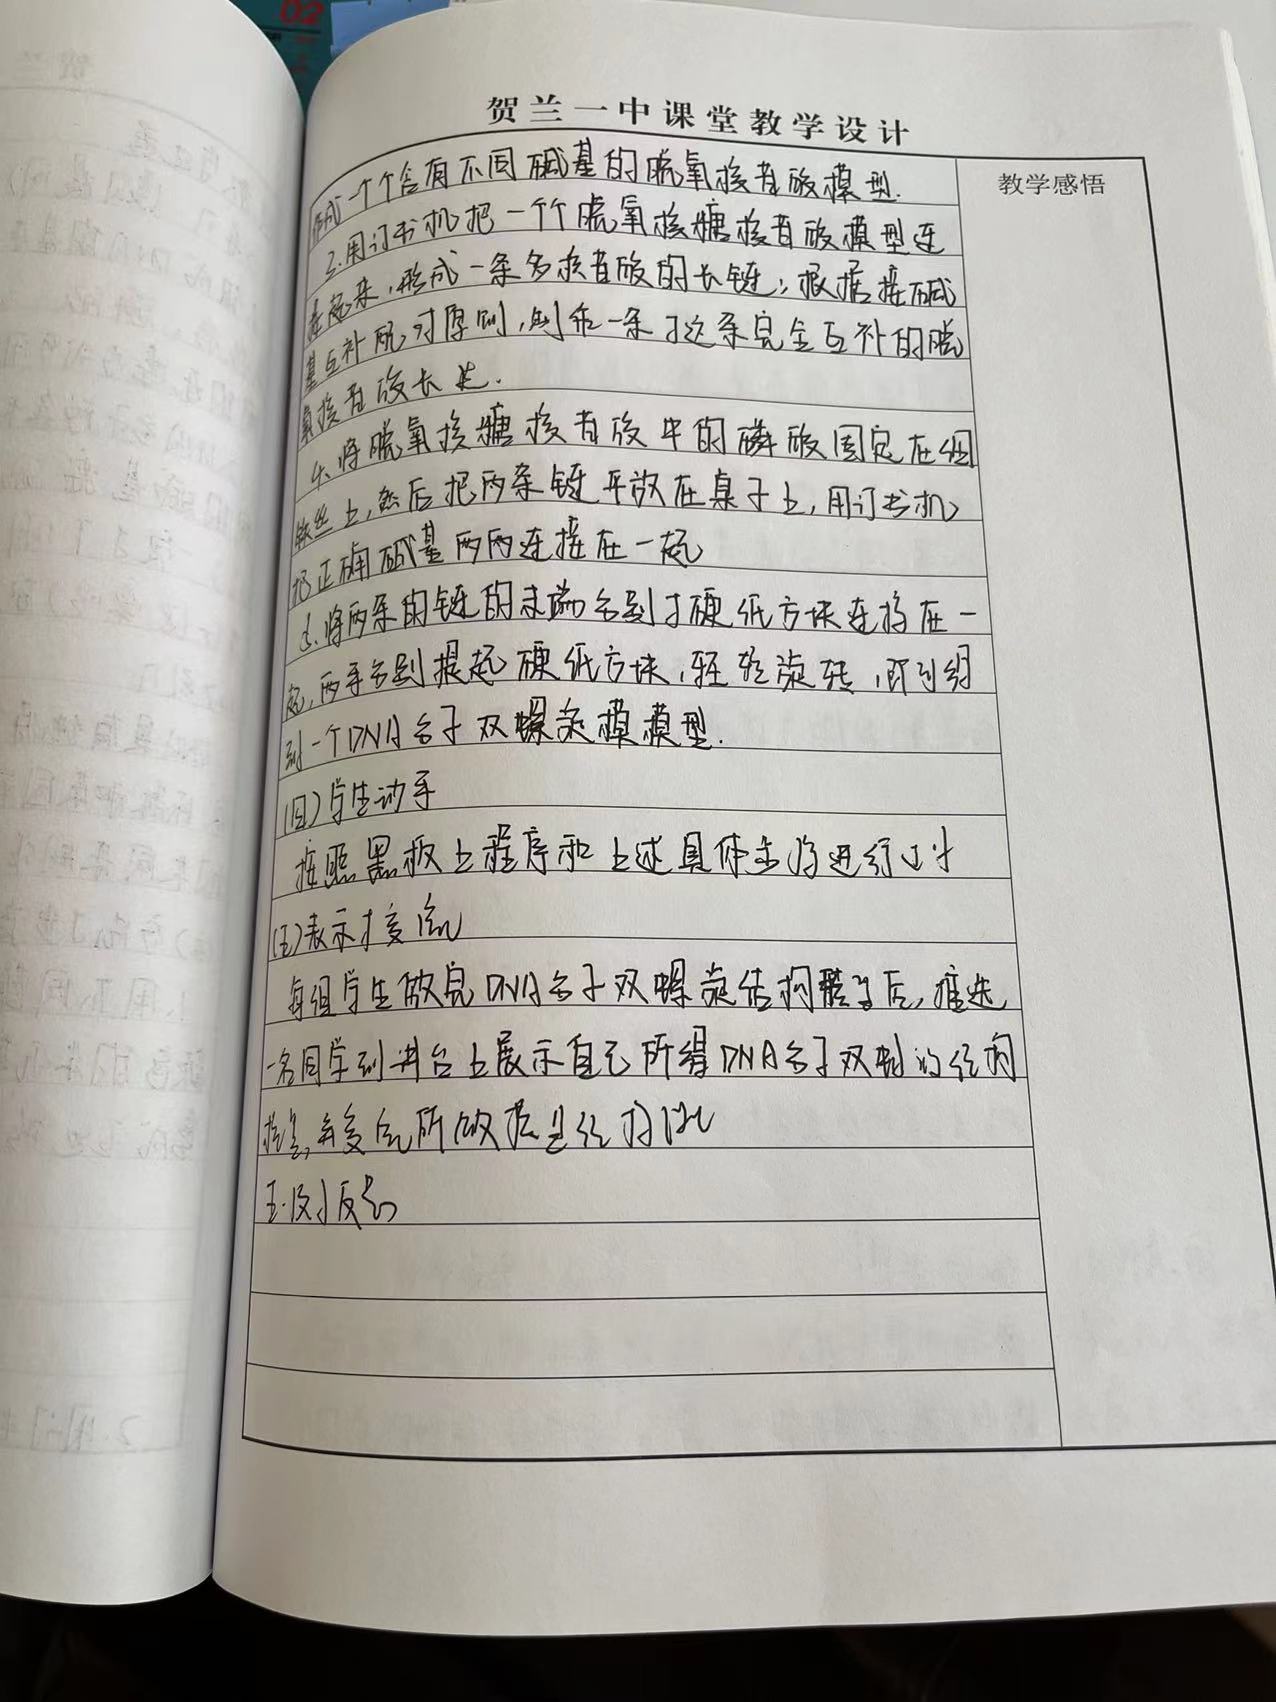 贺兰一中课堂教学设计
教学感悟
一个个含有不同碱基的脱氧核苷酸模型.
3.用订书机把一个个脱氧核糖核苷酸模型连
接起来,形成一条多核苷酸的长链;根据接碱
基互补配对原则,制作一条与这条完全互补的脱
氧核苷酸长链.
4、将脱氧核糖核苷酸中的磷酸固定在细
铁丝上,然后把两条链平放在桌子上,用订书机
把正确碱基两两连接在一起
5、将两条的链的末端分别与硬纸方块连接在一
起,两手分别提起硬纸方块,轻轻旋转,即可得
到一个DNA分子双螺旋模模型.
(四)学生动手
按照黑板上程序和上述具体步骤进行
(五)表示
每组学生做完DNA分子双螺旋结构后,推选
一名同学到讲台上展示自己所得DNA分子双的结构
所做
五.反